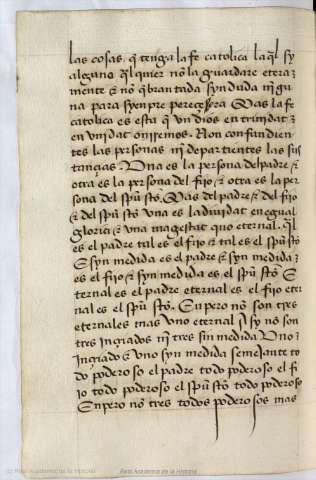 las cosas. q̃ tenga la fe catolica la q̃l sy
alguno q̃l quier nõ la guardare etera
mente & nõ q̃brantada syn duda nĩgũ
na para syenpre peresçera Mas la fe
catolica es esta q̃ un dios en trinidat &
en unidat onrremos. Non confundien
tes las personas nĩ departientes las sus
tançias. Una es la persona del padre &
otra es la persona del fijo & otra es la per
sona del spũ stõ. Mas del padre & del fijo
& del spũ stõ una es la diuidat en egual
gloria & una magestat quo eternal. q̃l
es el padre tal es el fijo & tal es el spũ stõ
Syn medida es el padre & syn medida
es el fijo & syn medida es el spũ stõ E
ternal es el padre eternal es el fijo eter
nal es el spũ stõ. Enpero nõ son tres
eternales mas uno eternal Asy nõ son
tres incriados nĩ tres sin medida Uno
incriado & uno syn medida semejante to
do poderoso el padre todo poderoso el fi
jo todo poderoso el spũ stõ todo poderoso
Enpero nõ tres todos poderosos mas
(c) Real Academia de la Historia
Real Academia de la Historia